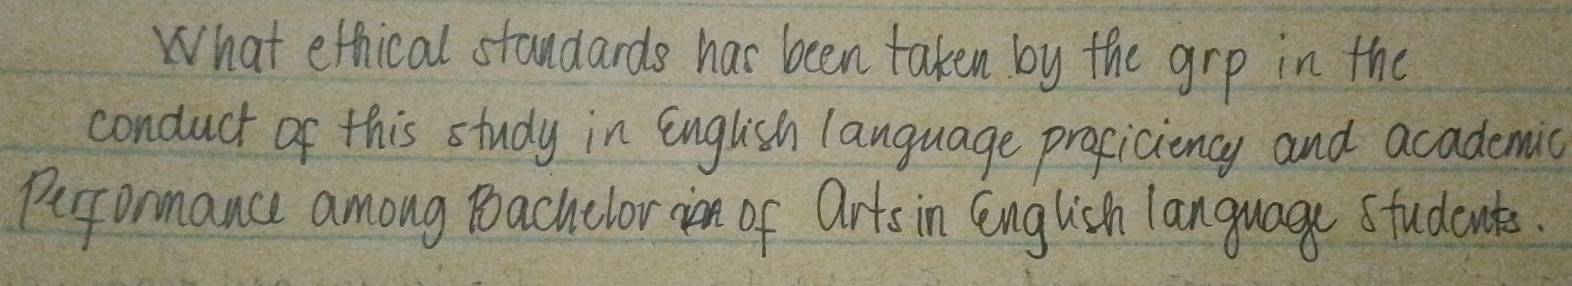 What ethical standards has been taken by the grp in the
conduct of this study in English language proficiency and academic
Performance among Bachelor of Arts in English language students.